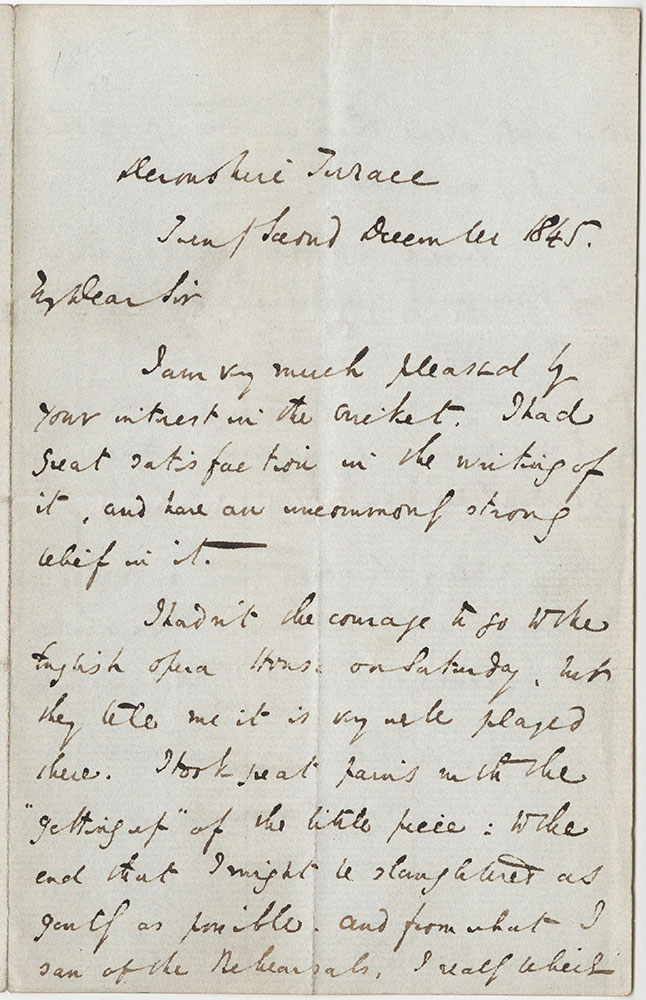 Devonshire Terrace
Twenty Second December 1845.
My Dear Sir
I am very much pleased by
your interest in the cricket. I had
great satisfaction in the writing of
it, and have an uncommonly strong
belief in it.
I hadn't the courage to go to the
English opera House on Saturday, but
they tell me it is very well played
there. I took great pains with the
"getting up" of the little piece: to the
end that I might be slaughtered as
gently as possible. And from what I
saw of the Rehearsals, I really believe